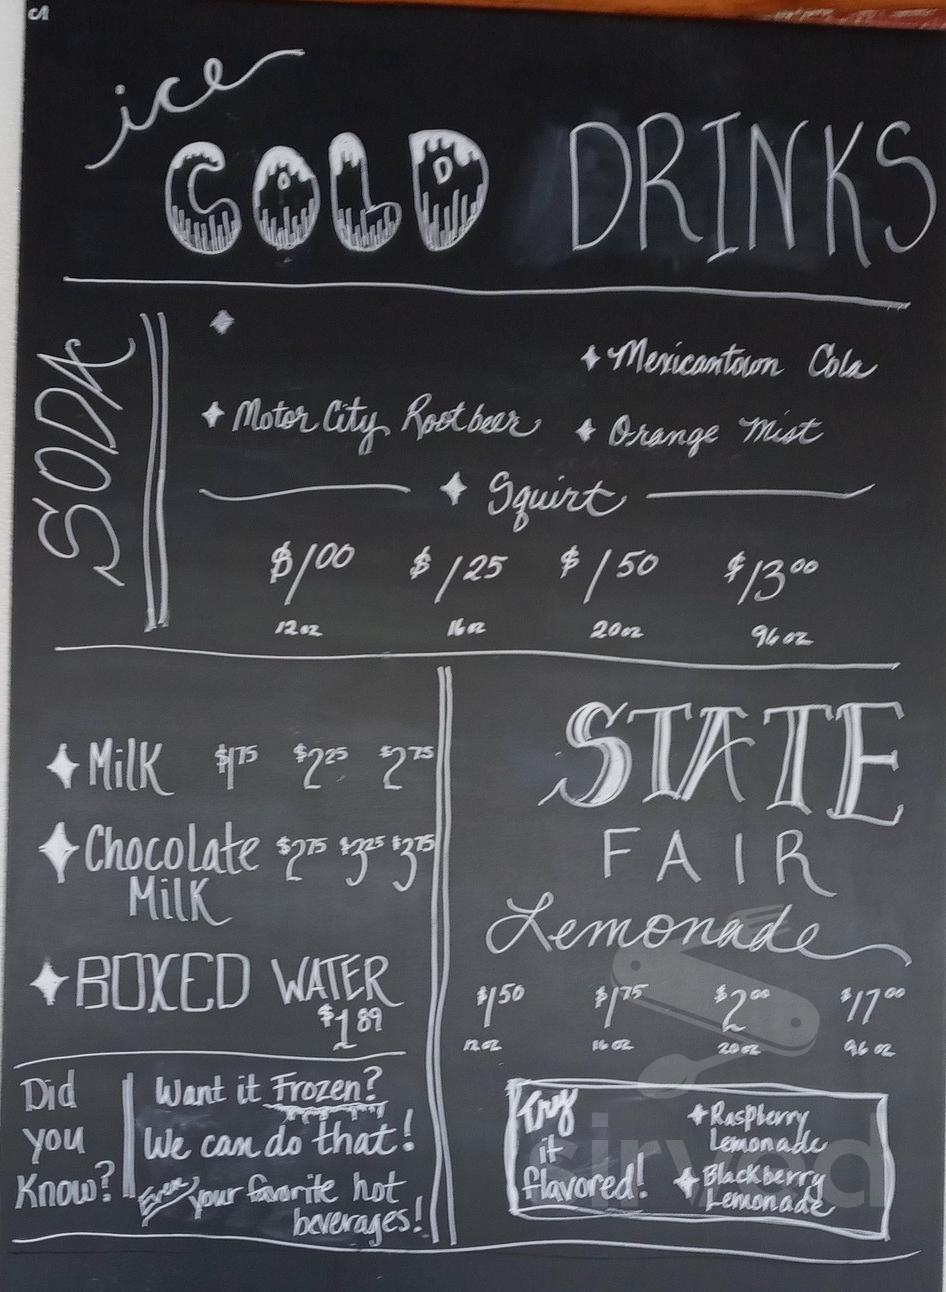 ice
COLD DRINKS
SODA
Mexicantown Cola
Motor City Rootbeer
Orange Mist
Squirt
$1.00 $1.25 $1.50 $13.00
12oz 16oz 20oz 96oz
Milk $1.75 $2.25 $2.75
Chocolate $2.75 $3.25 $3.75
Milk
BOXED WATER
$1.89
STATE
FAIR
Lemonade
$1.50 $1.75 $2.00 $17.00
12oz 16oz 20oz 96oz
Did you Know?
Want it Frozen?
We can do that!
Even your favorite hot
beverages!
Try it flavored!
Raspberry
Lemonade
Blackberry
Lemonade
sirved